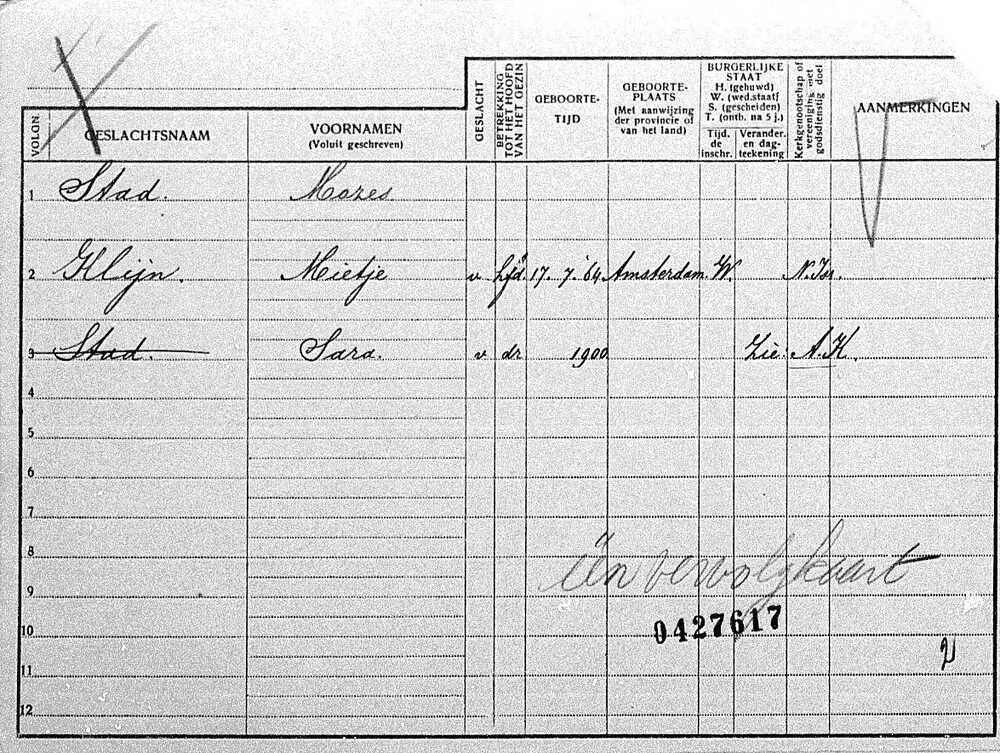 VOLGN.
GESLACHTSNAAM
VOORNAMEN
(Voluit geschreven)
GESLACHT
BETREKKING
TOT HET HOOFD
VAN HET GEZIN
GEBOORTE-
TIJD
GEBOORTE-
PLAATS
(Met aanwijzing
der provincie of
van het land)
BURGERLIJKE
STAAT
H. (gehuwd)
W. (wed.staat)
S. (gescheiden)
T. (ontb. na 5 j.)
Tijd.
de
inschr.
Verander.
en dag-
teekening
Kerkgenootschap of
vereeniging met
godsdienstig doel
AANMERKINGEN
1 Stad. Mozes.
2 Glijn. Mietje v. hfd. 17. 7. '64 Amsterdam. W. N. Isr.
3 Stad. Sara. v dr 1900 Zie: A.K.
4
5
6
7
8
één vervolgkaart
9
0427617
10
11
2
12